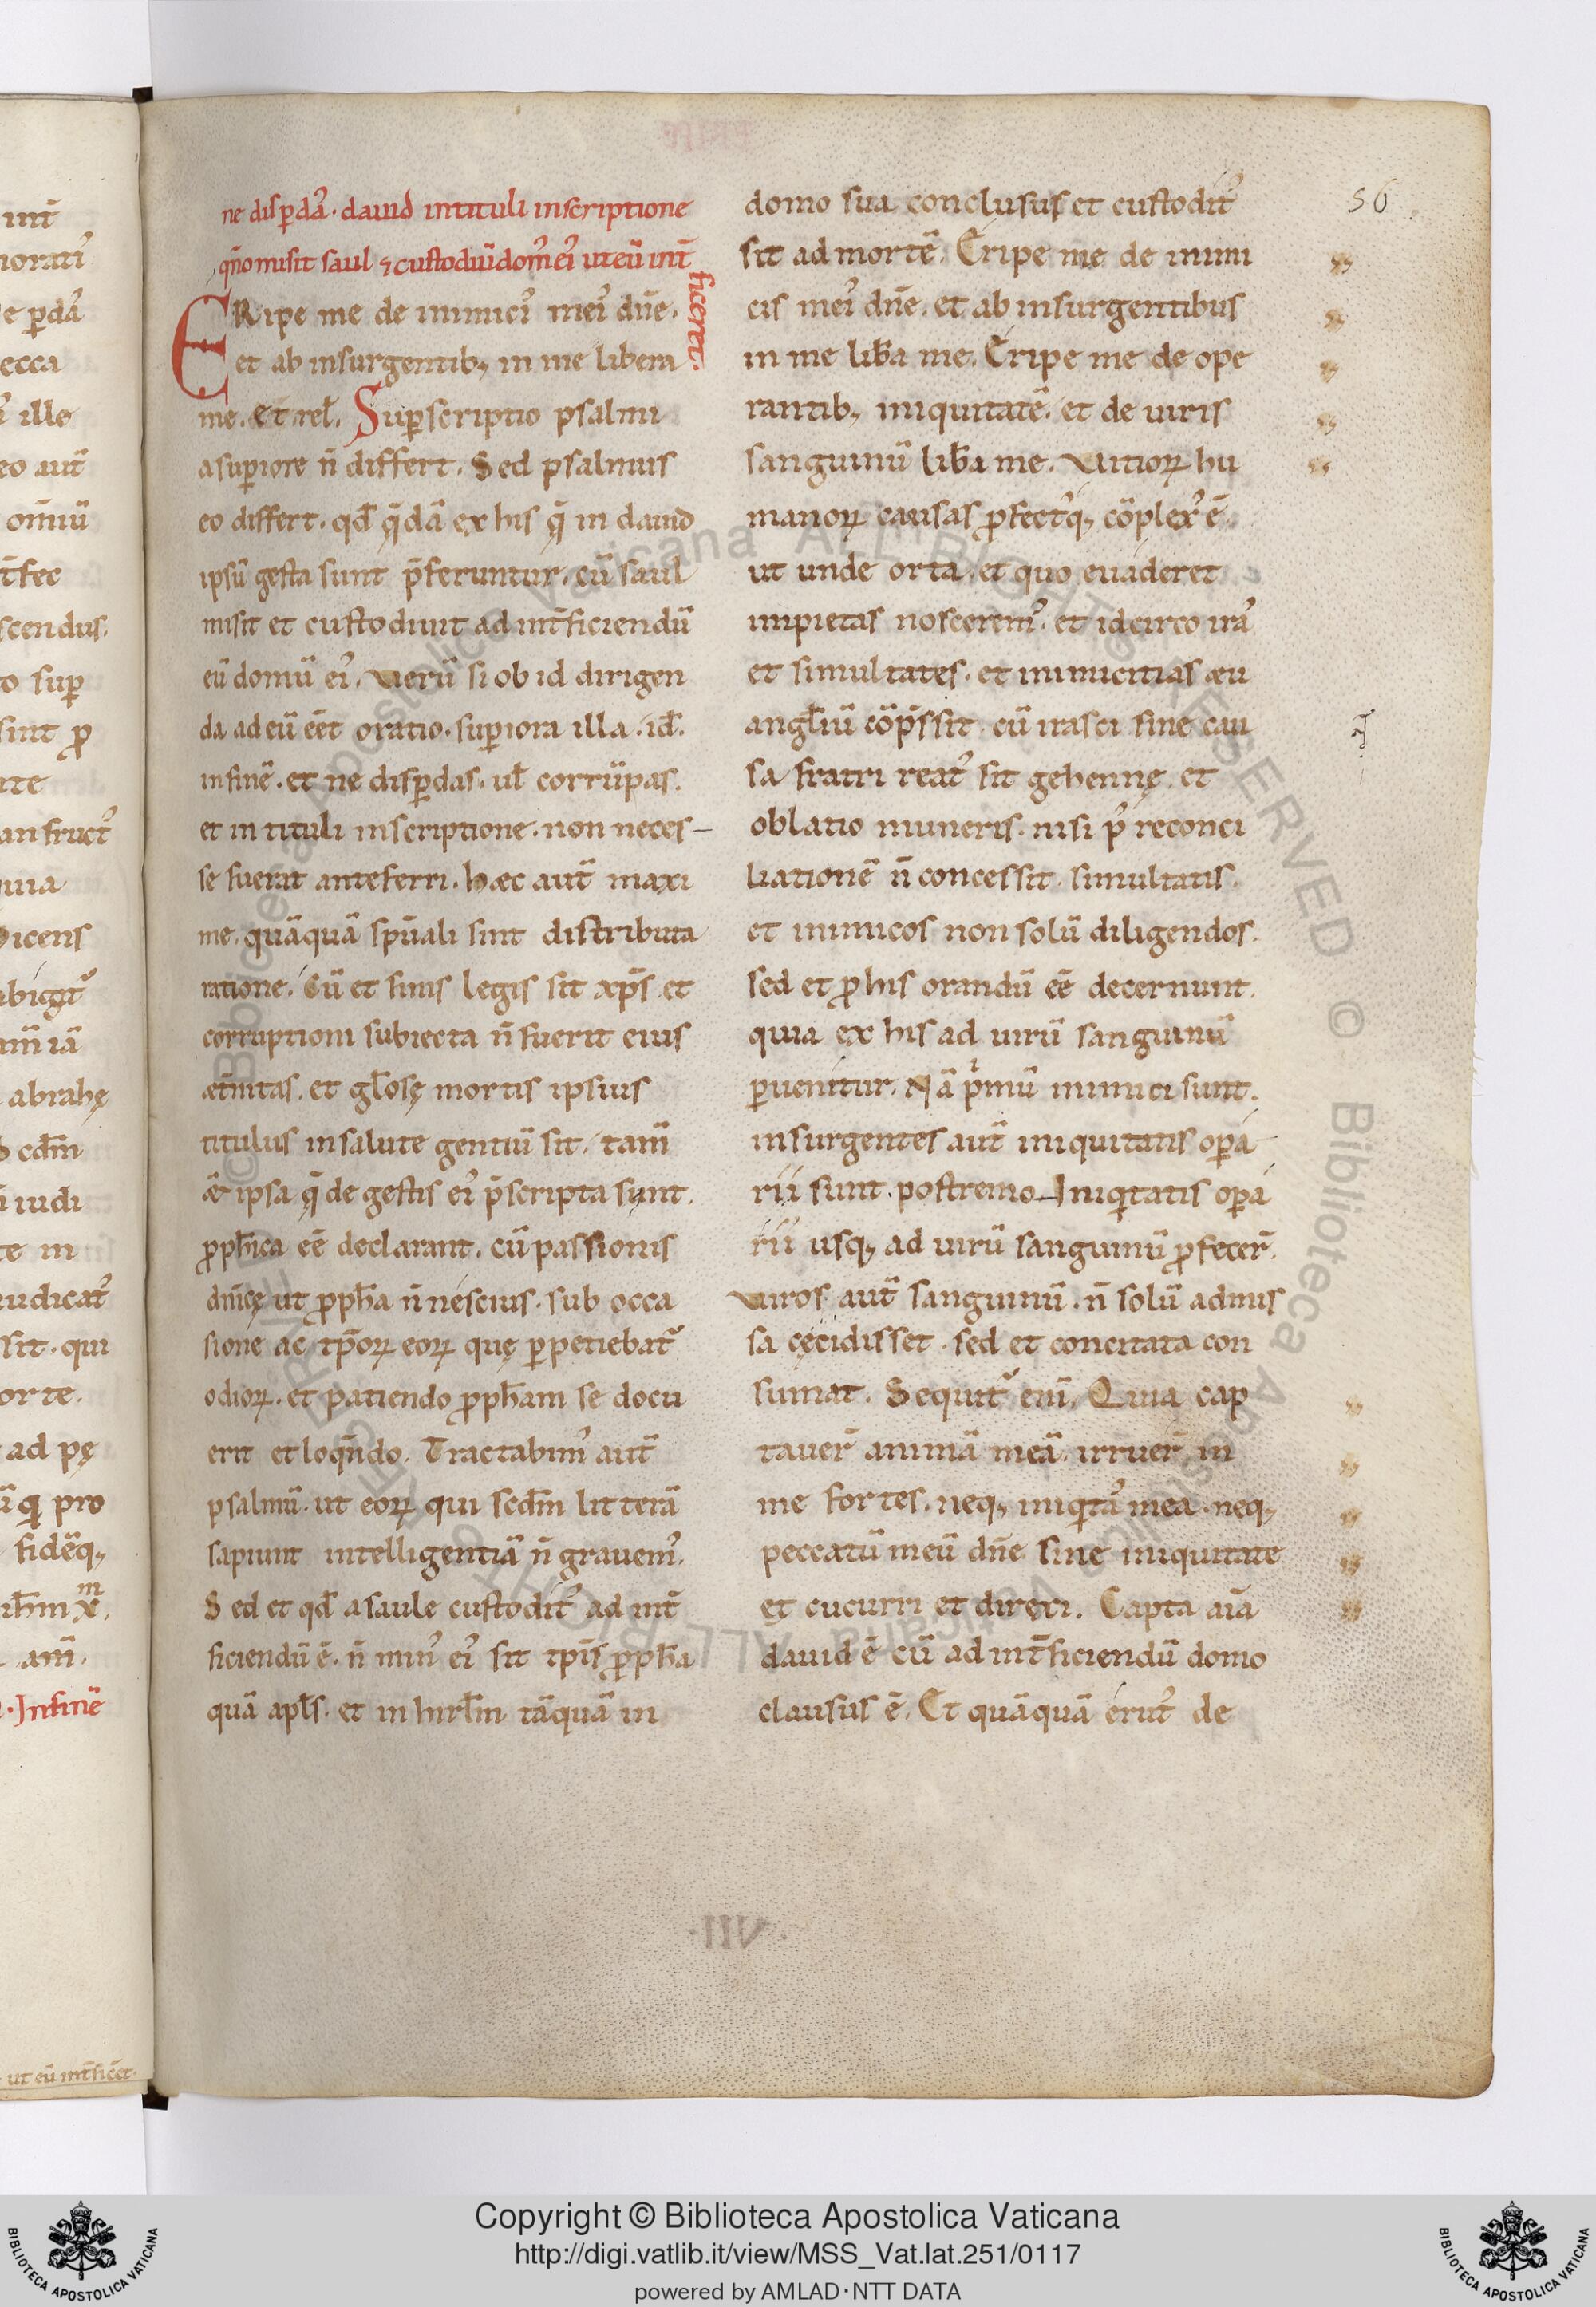 int̄
norati᾽
e ꝑda᾽
ecca
᾽ ille
eo aut̄
om̄iū
t̄fec
scendus.
to suꝑ
sint ꝓ
ite
an fruct᾽
uia
Dicens
abicit᷑
am̄ iā
abrahę
cd̄m
iudi
te in
iudicat᷑
sit · qui
orte.
ad pę
qͥ pro
fidēq;
am̄.
· Infinē
ut eū int̄ficet.
ne disꝑda᾽ · dauid intituli inscriptione
qn̄o misit saul ⁊ custodiū dom᾽ ei᾽ ut eū int̄
ficeret.
ERipe me de inimici᾽ mei᾽ dn̄e.
et ab insurgentib; in me libera
me. Et rel̄. Suꝑscriptio psalmi
a suꝑiore n̄ differt. Sed psalmus
eo differt. qd̄ q̄dā ex his q̄ in dauid
ipsū gesta sunt p̄feruntur. cū saul
misit et custodiuit ad int̄ficiendū
eū domū ei᾽. Verū si ob id dirigen
da ad eū eēt oratio. suꝑiora illa. id̄.
in finē. et ne disꝑdas. ul̄ corrūpas.
et in tituli inscriptione. non neces-
se fuerat anteferri. hæc aut̄ maxi
me. quāquā sp̄uali sint distributa
ratione. Cū et finis legis sit xp̄s. et
corruptioni subiecta n̄ fuerit eius
æt̄nitas. et gl̄osę mortis ipsius
titulus in salute gentiū sit. tam̄
& ipsa q̄ de gestis ei᾽ p̄scripta sunt.
ꝓph̄ica eē declarant. cū passionis
dn̄icę ut ꝓph̄a n̄ nescius. sub occa
sione ac tp̄oꝝ eoꝝ quę ꝑpetiebat᷑
odioꝝ. et patiendo ꝓph̄am se docu
erit et loqn̄do. Tractabim᾽ aut̄
psalmū. ut eoꝝ qui scd̄m litterā
sapiunt intelligentiā n̄ grauem᾽.
Sed et qd̄ a saule custodit᷑ ad int̄
ficiendū ē. n̄ min᾽ ei᾽ sit tp̄is ꝓph̄a
quā apl̄s. et in hirl̄m tāquā in
domo sua conclusus et custodit᷑
sit ad mortē. Eripe me de inimi
cis mei᾽ dn̄e. et ab insurgentibus
in me lib̄a me. Eripe me de ope
rantib; iniquitatē. et de uiris
sanguinū lib̄a me. Vitioꝝ hu
manoꝝ causas ꝓfect᾽q; cōplex᾽ ē.
ut unde orta. et quo euaderet
impietas noscerem᾽. et idcirco ira᾽
et simultates. et inimicitias eu
angl̄iū cōp̄ssit. cū irasci sine cau
sa fratri reat᾽ sit gehennę. et
oblatio muneris. nisi p᾽ reconci
liationē n̄ concessit. simultatis.
et inimicos non solū diligendos.
sed et ꝓ his orandū eē decernunt.
quia ex his ad uirū sanguinū
ꝑuenitur. Nā pͥmū inimici sunt.
insurgentes aut̄ iniquitatis oꝑa
rii sunt. postremo Iniqͥtatis oꝑa
rii usq; ad uirū sanguinū ꝓfecer̄.
Viros aut̄ sanguinū. n̄ solū admis
sa cęcidisset. sed et concitata con
sumat. Sequit᷑ eni᷑. Quia cap
tauer̄ animā meā. irruer̄ in
me fortes. neq; iniqͥta᾽ mea. neq;
peccatū meū dn̄e sine iniquitate
et cucurri et direxi. Capta aīa
dauid ē cū ad int̄ficiendū domo
clausus ē. Et quāquā erut᾽ de
56
Copyright © Biblioteca Apostolica Vaticana
http://digi.vatlib.it/view/MSS_Vat.lat.251/0117
powered by AMLAD·NTT DATA
BIBLIOTECA APOSTOLICA VATICANA
BIBLIOTECA APOSTOLICA VATICANA